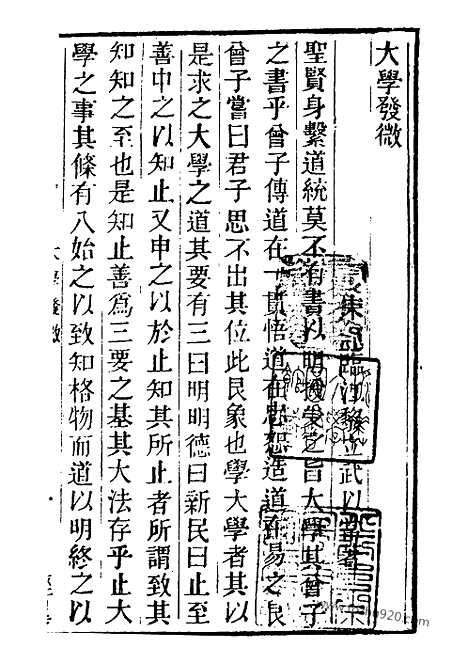 大學發微
臨江黎立武以常著
聖賢身繫道統莫不有書以明授受之旨大學其曾子
之書乎曾子傳道在一貫悟道在忠恕造道在易之艮
曾子嘗曰君子思不出其位此艮象也學大學者其以
是求之大學之道其要有三曰明明德曰新民曰止至
善申之以知止又申之以於止知其所止者所謂致其
知知之至也是知止善爲三要之基其大法存乎止大
學之事其條有八始之以致知格物而道以明終之以
大學發微